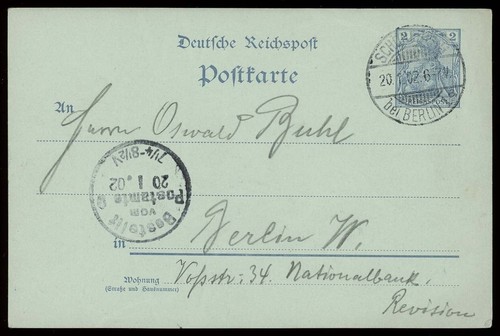 Deutsche Reichspost
Postkarte
2
SCH
20.1.02.6-7N.
bei BERLIN
An
Herrn Oswald Buhl
Bestellt
vom
Postamte
20 1.02
7¼-8½V
in Berlin W.
Wohnung
(Straße und Hausnummer)
Voßstr. 34. Nationalbank.
Revision